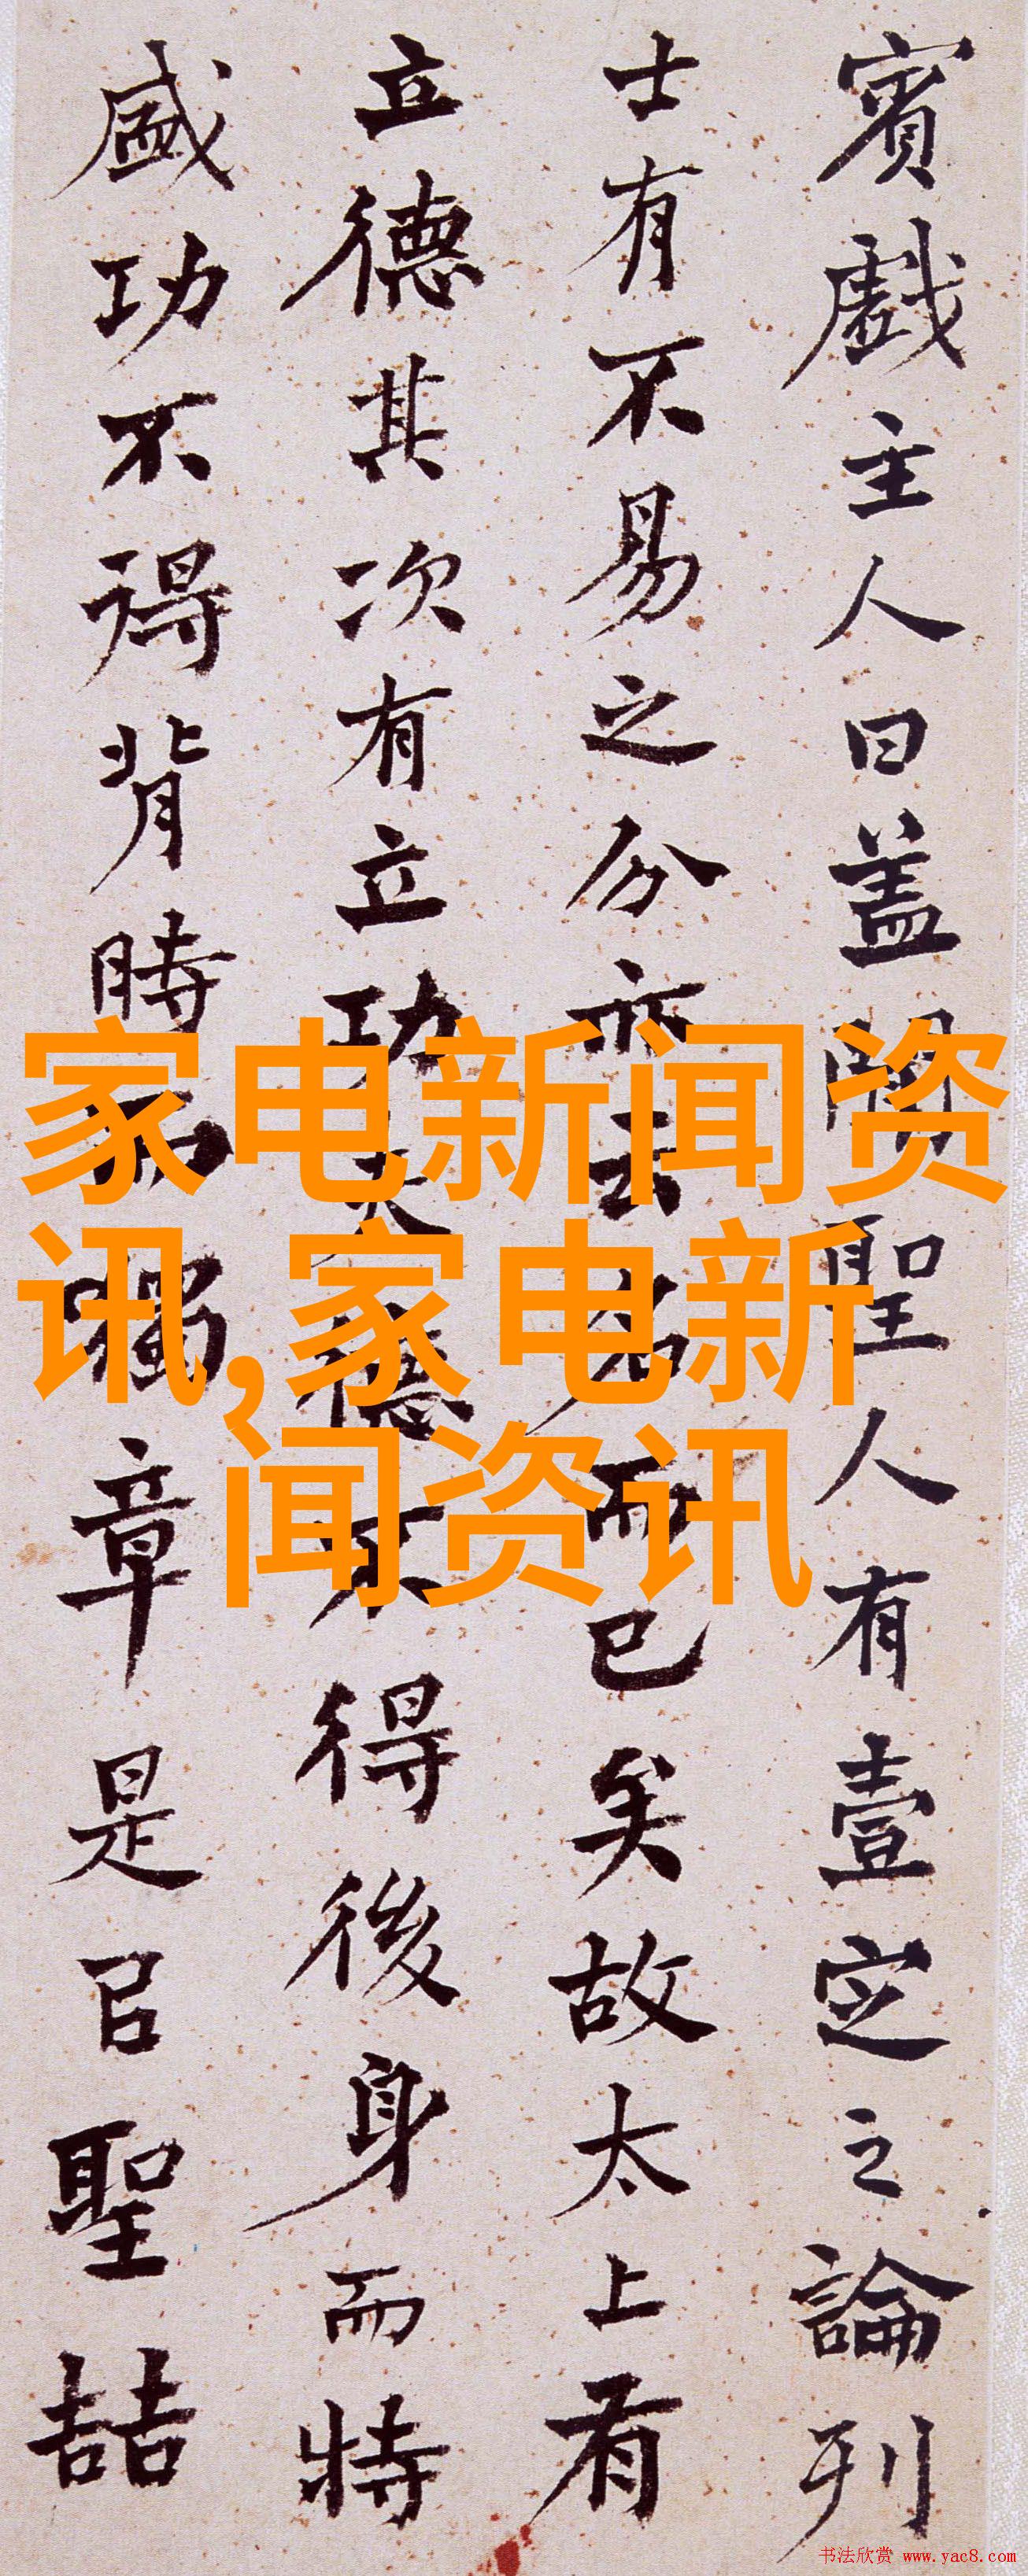 賓戲主人曰蓋聞聖人有壹定之論刋
士有不易之分亦云名而已矣故太上有
立德其次有立功夫德不得後身而特
盛功不得背時而獨章是㠯聖喆
家电新闻资
讯,家电新
闻资讯
书法欣赏 www.yac8.com